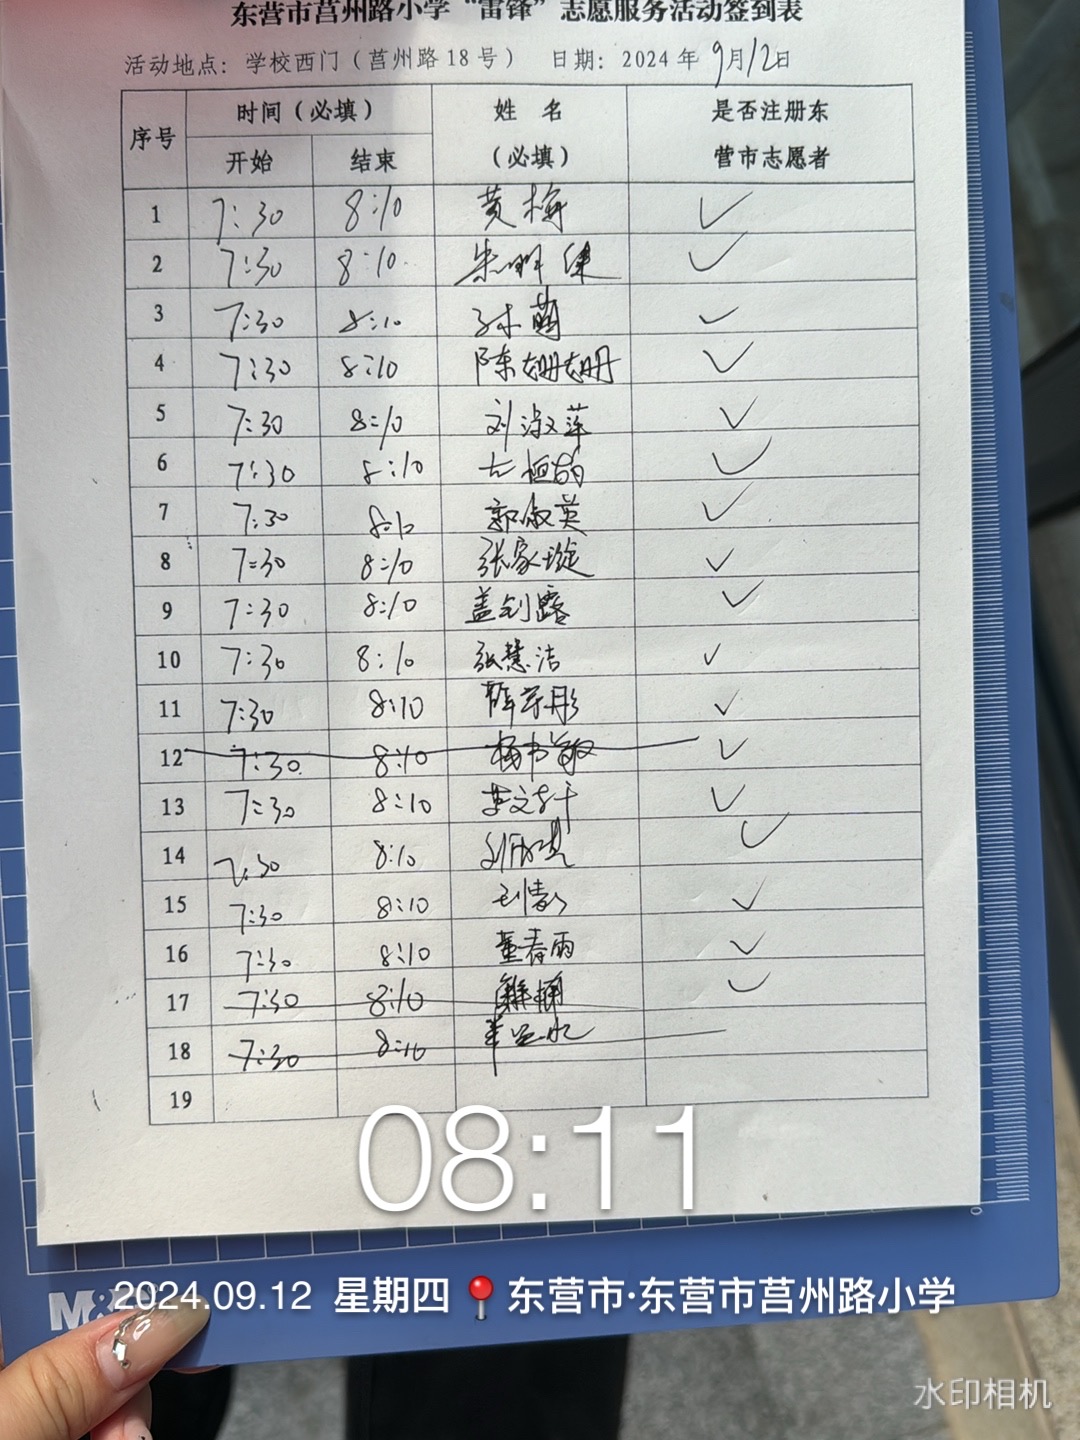 东营市莒州路小学“雷锋”志愿服务活动签到表
活动地点：学校西门（莒州路18号） 日期：2024年9月12日
序号 时间（必填） 姓 名 是否注册东
开始 结束 （必填） 营市志愿者
1 7:30 8:10 黄梅 ✓
2 7:30 8:10 朱 ✓
3 7:30 8:10 孙萌 ✓
4 7:30 8:10 陈姗姗 ✓
5 7:30 8:10 刘淑萍 ✓
6 7:30 8:10 ✓
7 7:30 8:10 郭俶英 ✓
8 7:30 8:10 张家璇 ✓
9 7:30 8:10 盖剑露 ✓
10 7:30 8:10 张慧洁 ✓
11 7:30 8:10 ✓
12 7:30 8:10 ✓
13 7:30 8:10 ✓
14 7:30 8:10 ✓
15 7:30 8:10 ✓
16 7:30 8:10 董春雨 ✓
17 7:30 8:10 ✓
18 7:30 8:10
19
08:11
2024.09.12 星期四 东营市·东营市莒州路小学
M&
水印相机